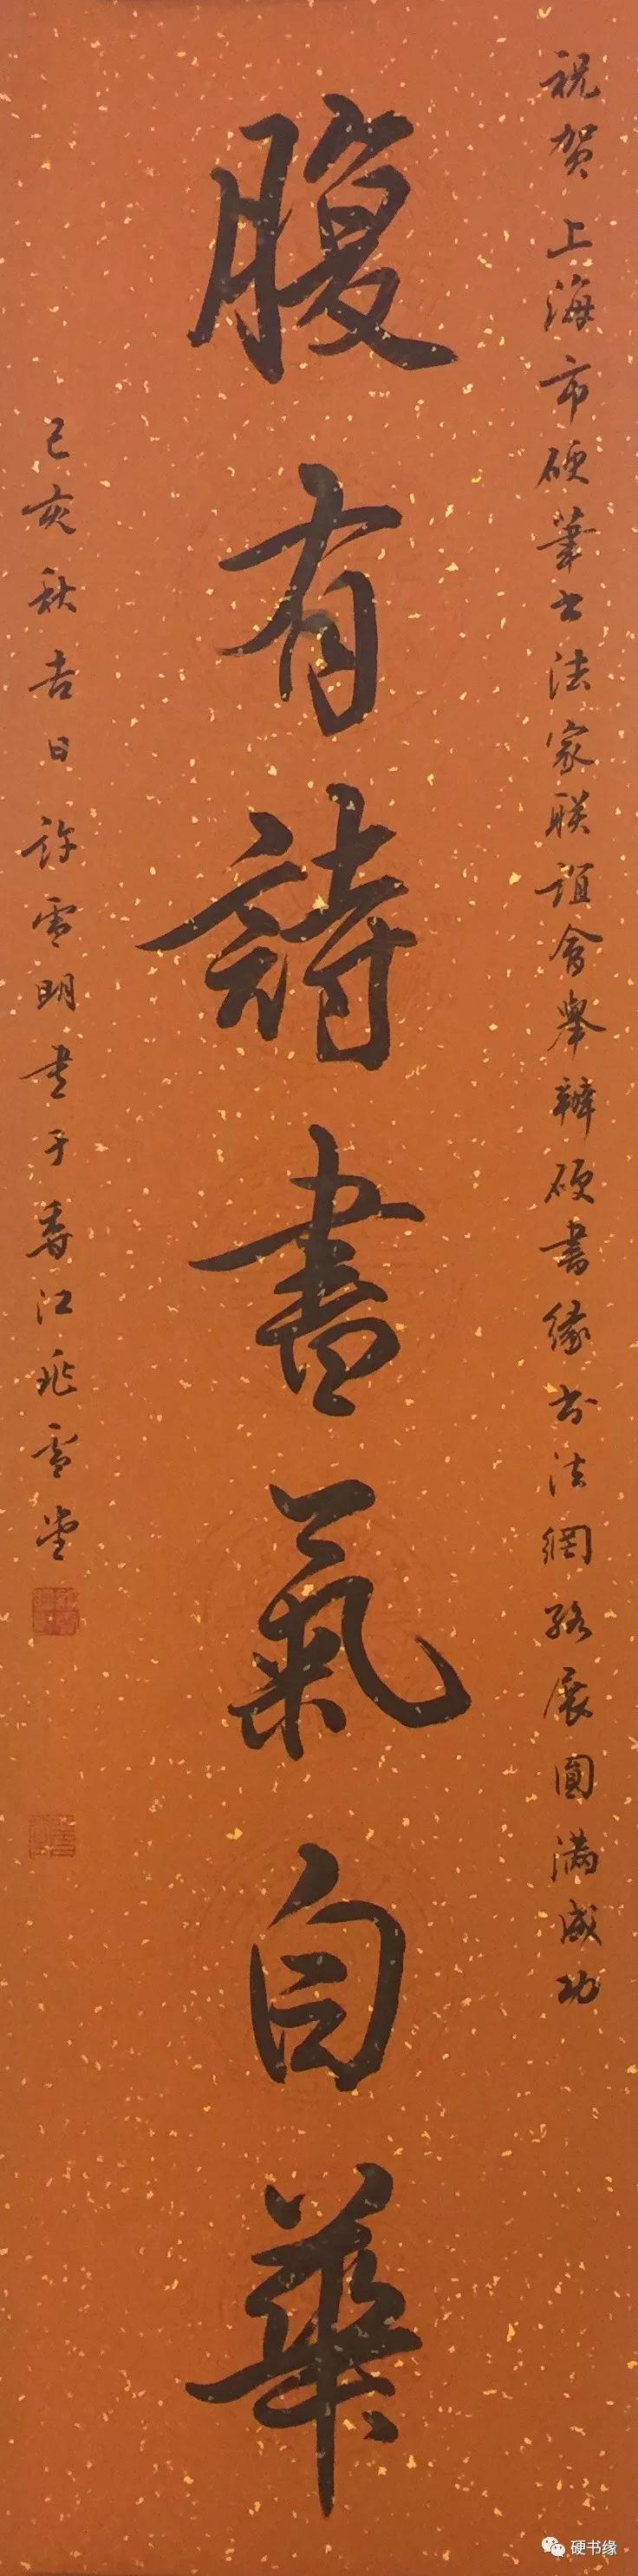 祝贺上海市硬笔书法家联谊会舉辦硬書缘书法網络展圓满成功
腹有詩書氣自華
己亥秋吉日许雪明书于香江飛雪堂
硬书缘